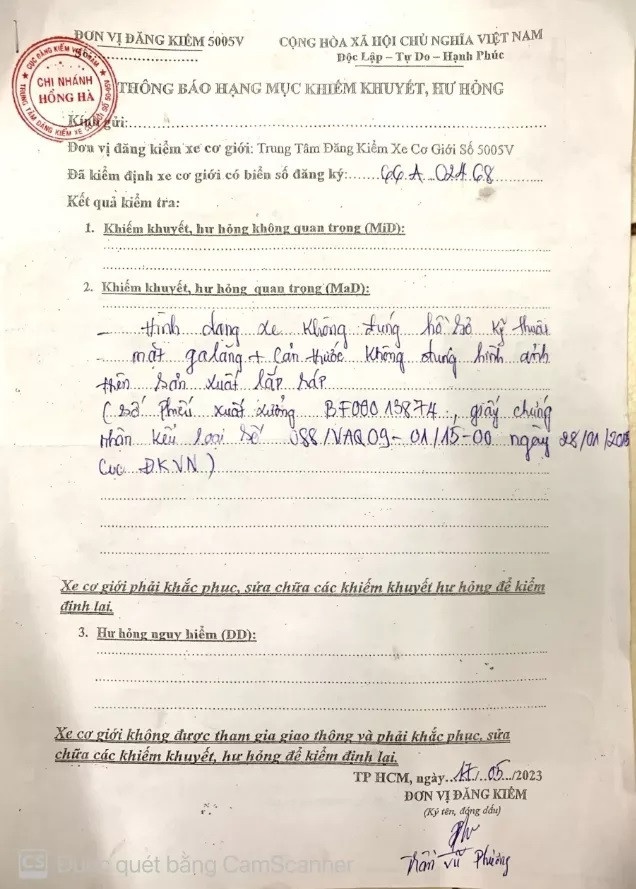 ĐƠN VỊ ĐĂNG KIỂM 5005V
CỘNG HÒA XÃ HỘI CHỦ NGHĨA VIỆT NAM
Số
Độc Lập – Tự Do – Hạnh Phúc
CHI NHÁNH
HỒNG HÀ
THÔNG BÁO HẠNG MỤC KHIẾM KHUYẾT, HƯ HỎNG
Kính gửi:
Đơn vị đăng kiểm xe cơ giới: Trung Tâm Đăng Kiểm Xe Cơ Giới Số 5005V
Đã kiểm định xe cơ giới có biển số đăng ký: 66A 024.68
Kết quả kiểm tra:
1. Khiếm khuyết, hư hỏng không quan trọng (MiD):
2. Khiếm khuyết, hư hỏng quan trọng (MaD):
– Hình dạng xe không đúng hồ sơ kỹ thuật
mặt galăng + Cản trước không đúng hình ảnh
sản xuất lắp ráp
(số phiếu xuất xưởng BF00013874, giấy chứng
nhận kiểu loại số /VAQ09-01/15-00 ngày 28/01/2015
Cục ĐKVN)
Xe cơ giới phải khắc phục, sửa chữa các khiếm khuyết hư hỏng để kiểm
định lại.
3. Hư hỏng nguy hiểm (DD):
Xe cơ giới không được tham gia giao thông và phải khắc phục, sửa
chữa các khiếm khuyết, hư hỏng để kiểm định lại.
TP HCM, ngày 17/05/2023
ĐƠN VỊ ĐĂNG KIỂM
(Ký tên, đóng dấu)
Trần Vũ Phương
CS Được quét bằng CamScanner